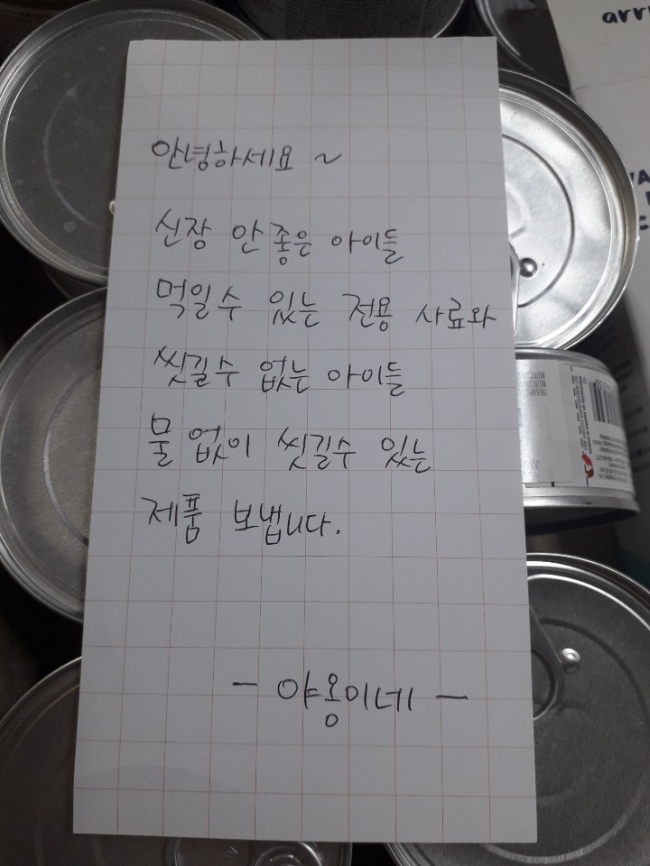 안녕하세요 ~
신장 안 좋은 아이들
먹일수 있는 전용 사료와
씻길수 없는 아이들
물 없이 씻길수 있는
제품 보냅니다.
- 야옹이네 -
arr